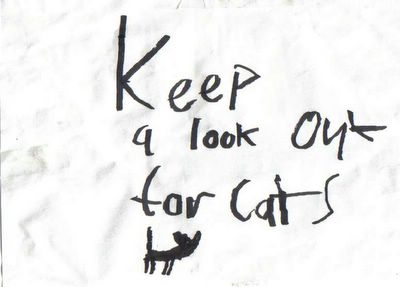 Keep
a look Out
for Cats